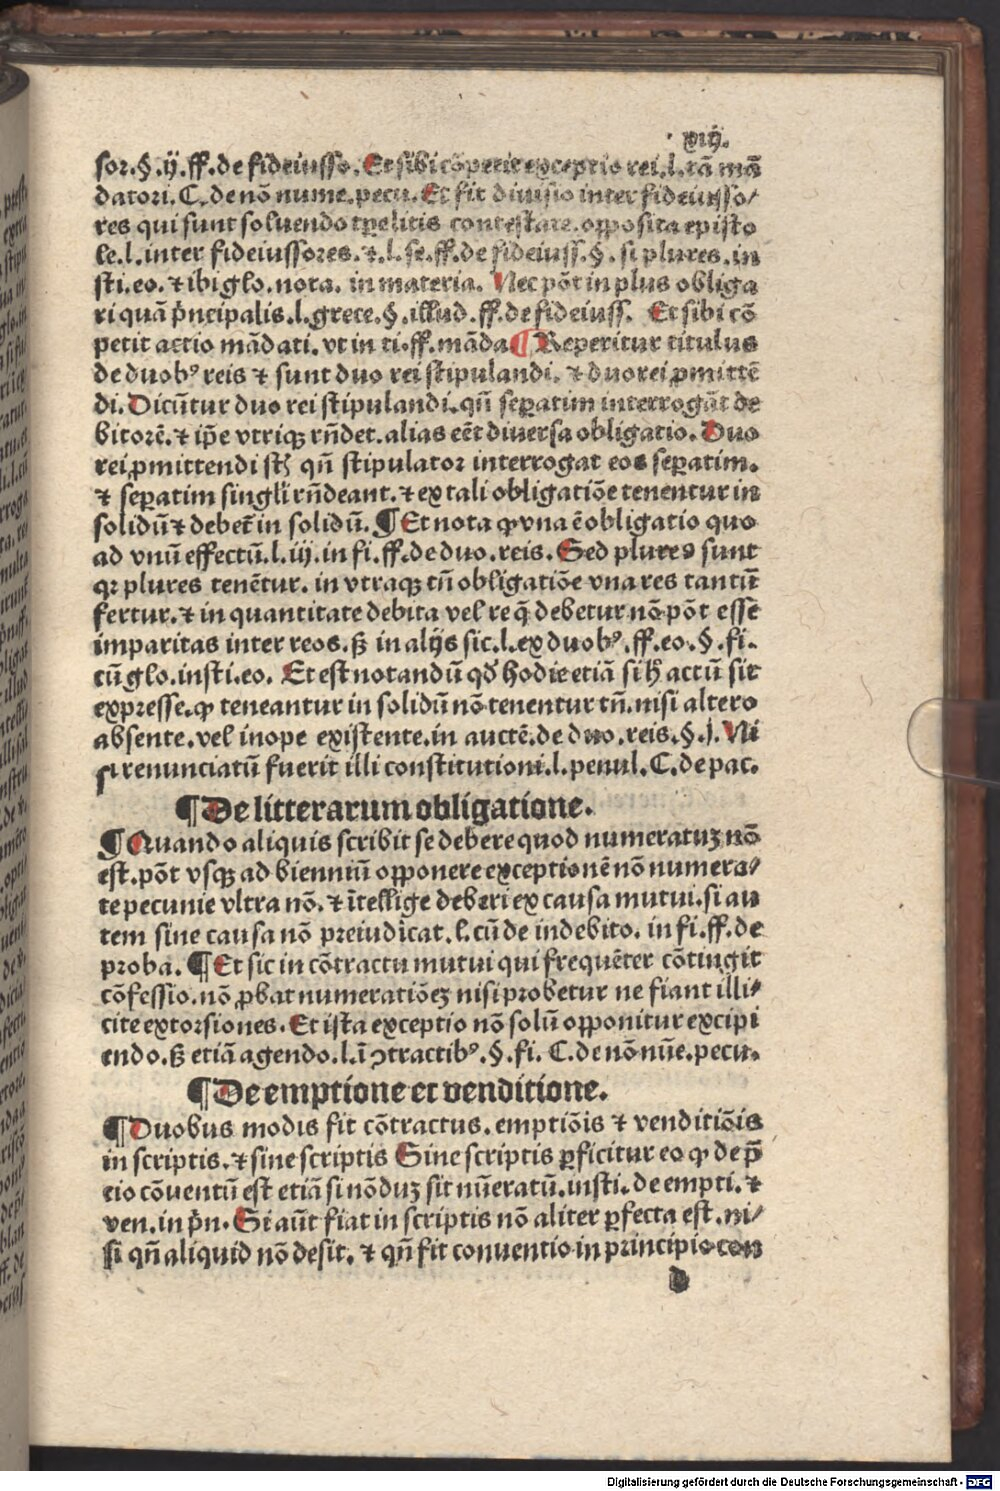 xiij.
sor.§.ij.ff.de fideiusso. Et sibi cōpetit exceptio rei.l.tā mā
datori. C. de nō nume.pecu. Et fit diuisio inter fideiusso/
res qui sunt soluendo tꝑe litis contestate. opposita episto
le.l.inter fideiussores.⁊.l.se.ff.de fideiuss.§.si plures.in
sti.eo.⁊ ibi glo.nota. in materia. Nec pōt in plus obliga
ri quā pͥncipalis.l.grece.§.illud.ff.de fideiuss. Et sibi cō
petit actio mādati.vt in ti.ff.māda ¶ Reperitur titulus
de duobꝰ reis ⁊ sunt duo rei stipulandi. ⁊ duo rei ꝓmittē
di. Dicūtur duo rei stipulandi. qn̄ seꝑatim interrogāt de
bitorē.⁊ ip̄e vtriqꝫ rn̄det. alias eēt diuersa obligatio. Duo
rei ꝓmittendi st̄ qn̄ stipulator interrogat eos seꝑatim.
⁊ seꝑatim singl̄i rn̄deant.⁊ ex tali obligatiōe tenentur in
solidū ⁊ debet̄ in solidū. ¶ Et nota ꝙ vna ē obligatio quo
ad vnū effectū.l.iij.in fi.ff.de duo.reis. Sed plures sunt
qꝛ plures tenētur. in vtraqꝫ tn̄ obligatiōe vna res tantū
fertur.⁊ in quantitate debita vel re q̄ debetur nō pōt esse
imparitas inter reos.sꝫ in alijs sic.l.ex duobꝰ.ff.eo.§.fi.
cū glo.insti.eo. Et est notandū qd̓ hodie etiā si h̓ actū sit
expresse.ꝙ teneantur in solidū nō tenentur tn̄.nisi altero
absente.vel inope existente.in auctē.de duo.reis.§.j. Ni
si renunciatū fuerit illi constitutioni.l.penul.C.de pac.
¶ De litterarum obligatione.
¶ Quando aliquis scribit se debere quod numeratuꝫ nō
est.pōt vsqꝫ ad bienniū opponere exceptionē nō numera/
te pecunie vltra nō.⁊ ītellige deberi ex causa mutui.si au
tem sine causa nō preiudicat.l.cū de indebito. in fi.ff.de
proba. ¶ Et sic in cōtractu mutui qui frequēter cōtingit
cōfessio.nō ꝓbat numeratiōeꝫ nisi probetur ne fiant illi/
cite extorsiones. Et ista exceptio nō solū opponitur excipi
endo.sꝫ etiā agendo.l.ī ꝯtractibꝰ.§.fi. C.de nō nūe.pecu.
¶ De emptione et venditione.
¶ Duobus modis fit cōtractus. emptiōis ⁊ venditiōis
in scriptis.⁊ sine scriptis Sine scriptis ꝑficitur eo ꝙ de p̄
cio cōuentū est etiā si nōduꝫ sit nūeratū.insti.de empti.⁊
ven.in pͥn. Si aūt fiat in scriptis nō aliter ꝑfecta est.ni/
si qn̄ aliquid nō desit. ⁊ qn̄ fit conuentio in principio con
d
Digitalisierung gefördert durch die Deutsche Forschungsgemeinschaft - DFG